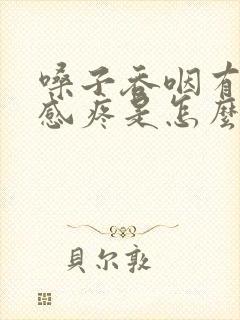 嗓子吞咽有
感疼是怎麽
貝尔敦